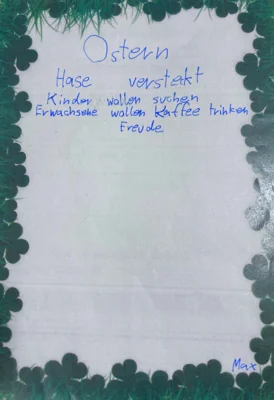 Ostern
Hase verstekt
Kinder wollen suchen
Erwachsene wollen Kaffee trinken
Freude
Max